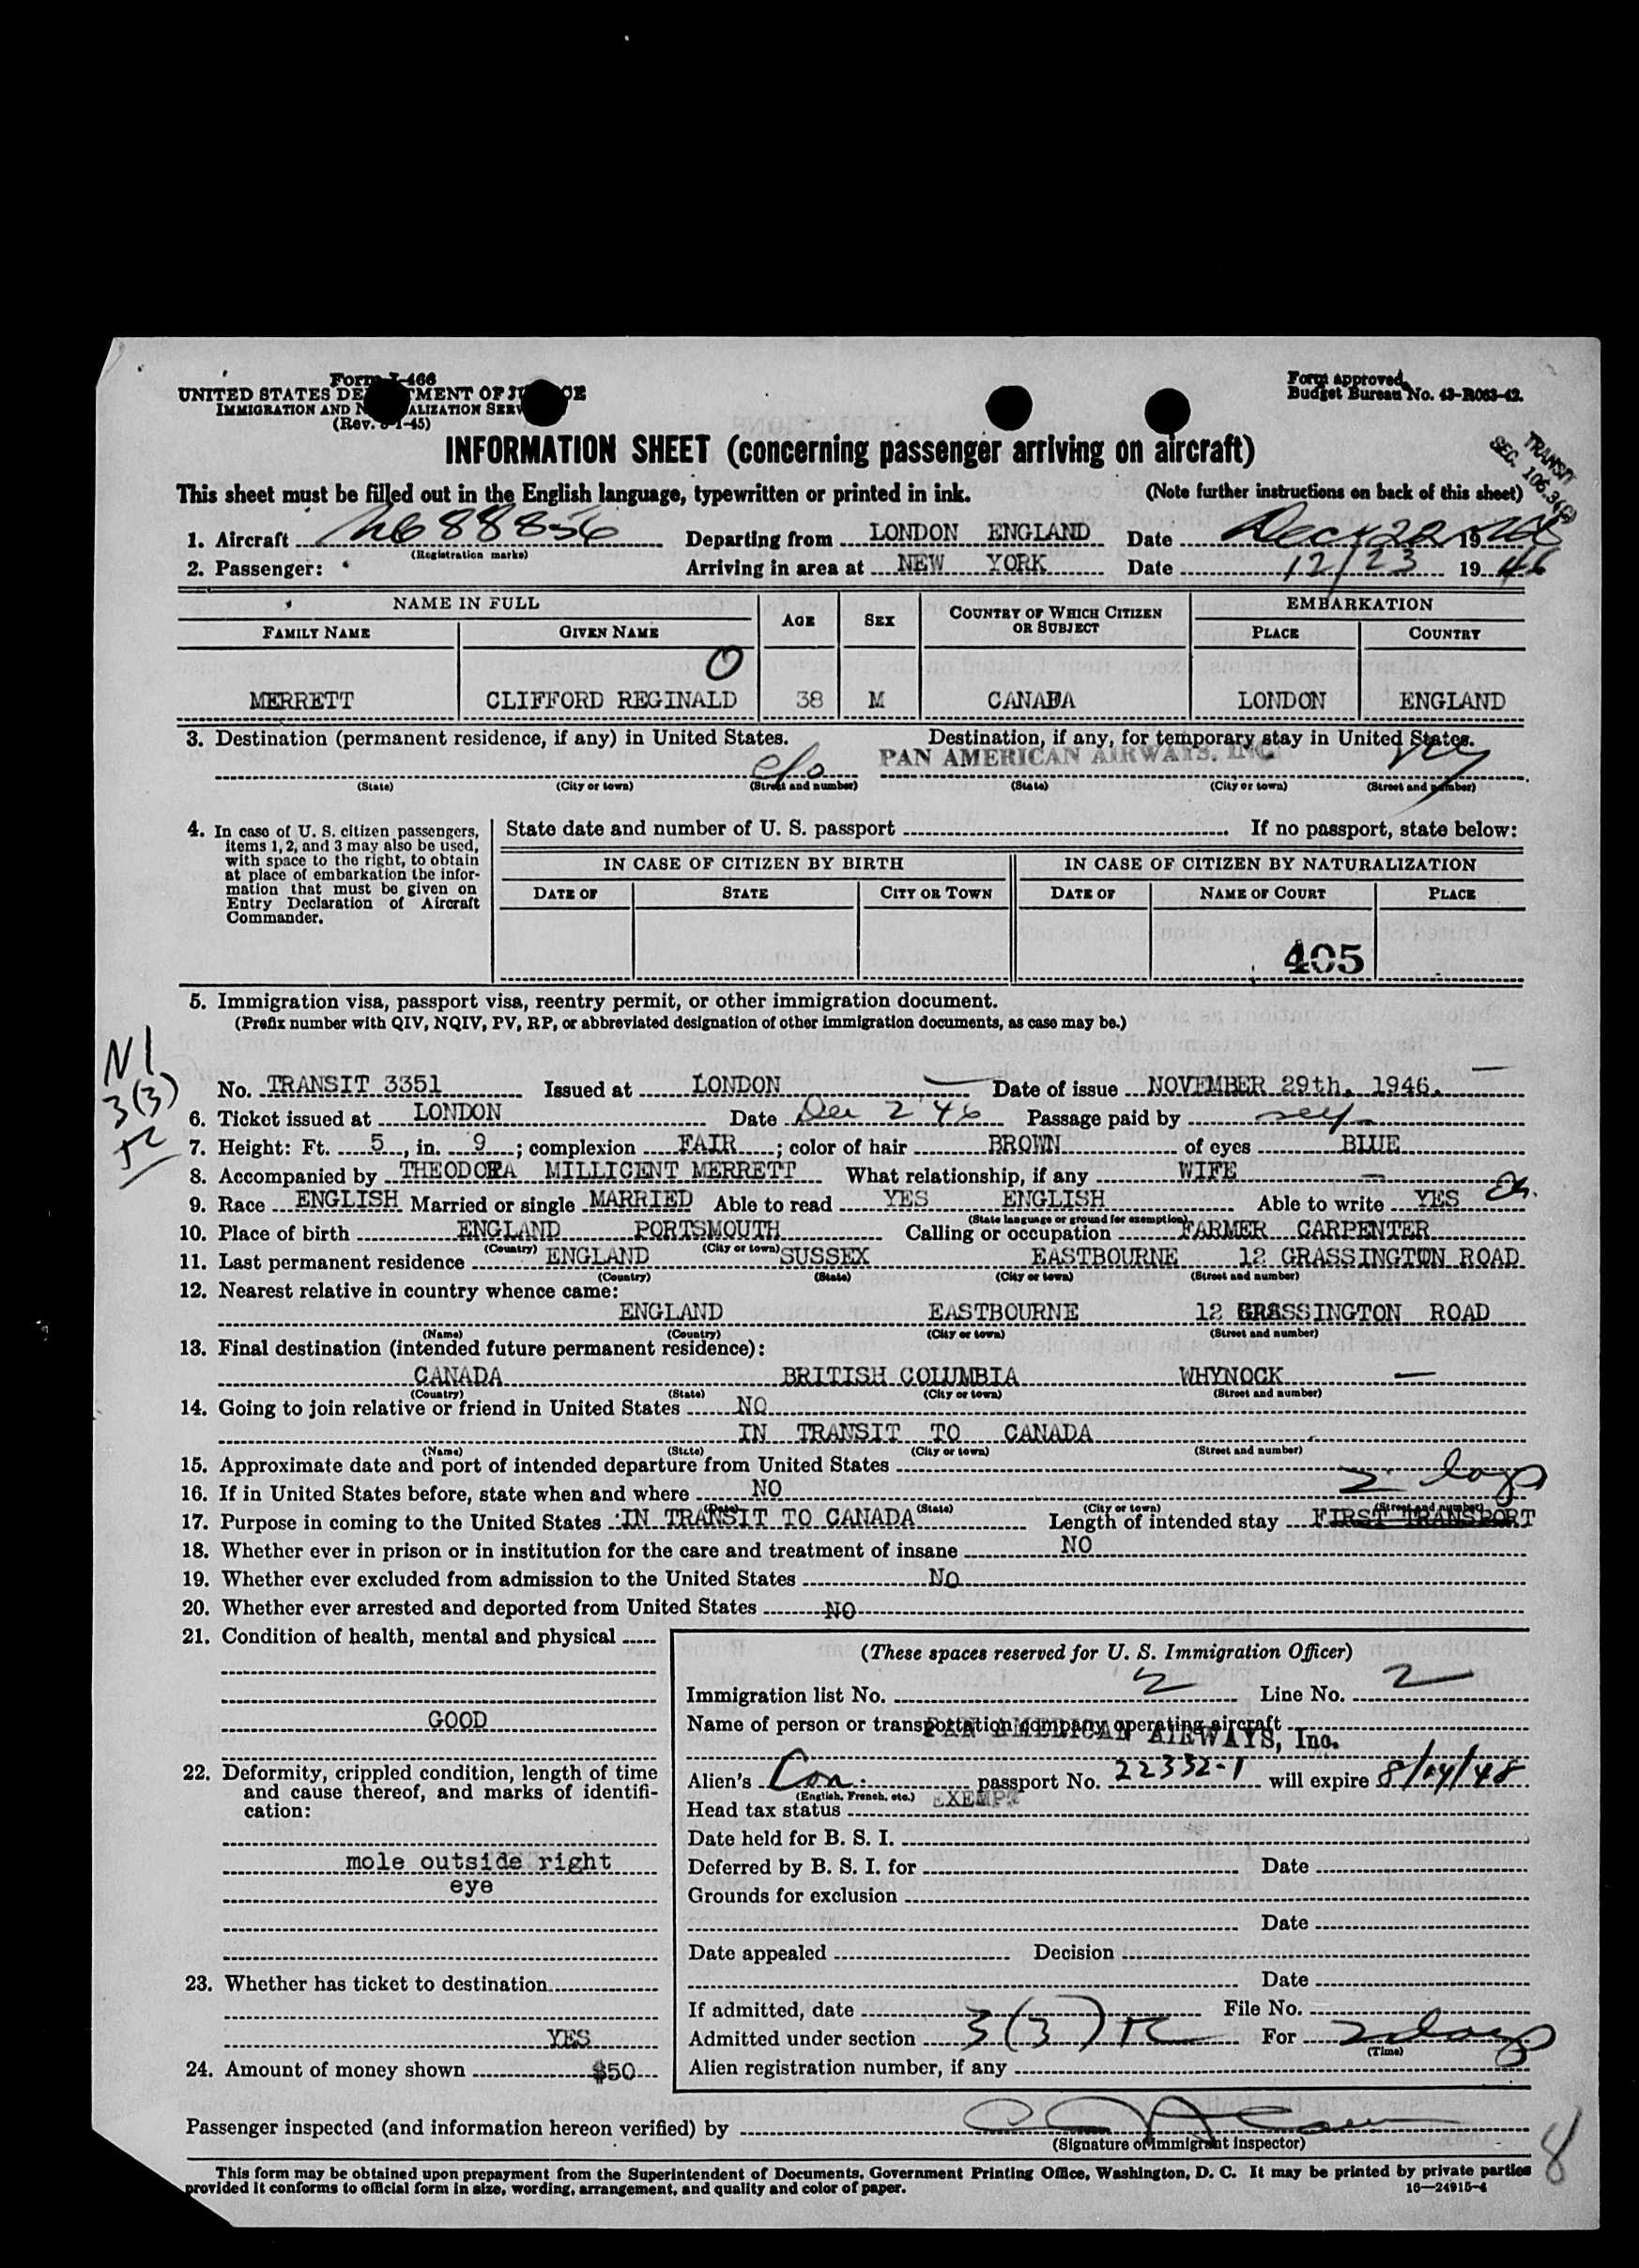 Form I-466
UNITED STATES DEPARTMENT OF JUSTICE
IMMIGRATION AND NATURALIZATION SERVICE
(Rev. -1-45)
Form approved.
Budget Bureau No. 43-R063-42.
INFORMATION SHEET (concerning passenger arriving on aircraft)
TRANSIT
SEC. 106.3(C)
This sheet must be filled out in the English language, typewritten or printed in ink. (Note further instructions on back of this sheet)
1. Aircraft 88856 Departing from LONDON ENGLAND Date Dec 22 1946
(Registration marks)
2. Passenger: Arriving in area at NEW YORK Date 12/23 1946
NAME IN FULL AGE SEX COUNTRY OF WHICH CITIZEN OR SUBJECT EMBARKATION
FAMILY NAME GIVEN NAME PLACE COUNTRY
O
MERRETT CLIFFORD REGINALD 38 M CANADA LONDON ENGLAND
3. Destination (permanent residence, if any) in United States. Destination, if any, for temporary stay in United States.
c/o PAN AMERICAN AIRWAYS, INC. NY
(State) (City or town) (Street and number) (State) (City or town) (Street and number)
4. In case of U. S. citizen passengers, items 1, 2, and 3 may also be used, with space to the right, to obtain at place of embarkation the information that must be given on Entry Declaration of Aircraft Commander.
State date and number of U. S. passport If no passport, state below:
IN CASE OF CITIZEN BY BIRTH IN CASE OF CITIZEN BY NATURALIZATION
DATE OF STATE CITY OR TOWN DATE OF NAME OF COURT PLACE
405
5. Immigration visa, passport visa, reentry permit, or other immigration document.
(Prefix number with QIV, NQIV, PV, RP, or abbreviated designation of other immigration documents, as case may be.)
N1
3(3)
No. TRANSIT 3351 Issued at LONDON Date of issue NOVEMBER 29th. 1946.
6. Ticket issued at LONDON Date Dec 2 '46 Passage paid by self
7. Height: Ft. 5, in. 9; complexion FAIR; color of hair BROWN of eyes BLUE
8. Accompanied by THEODORA MILLICENT MERRETT What relationship, if any WIFE
9. Race ENGLISH Married or single MARRIED Able to read YES ENGLISH Able to write YES
(State language or ground for exemption)
10. Place of birth ENGLAND PORTSMOUTH Calling or occupation FARMER CARPENTER
(Country) (City or town)
11. Last permanent residence ENGLAND SUSSEX EASTBOURNE 12 GRASSINGTON ROAD
(Country) (State) (City or town) (Street and number)
12. Nearest relative in country whence came:
ENGLAND EASTBOURNE 12 GRASSINGTON ROAD
(Name) (Country) (City or town) (Street and number)
13. Final destination (intended future permanent residence):
CANADA BRITISH COLUMBIA WHYNOCK
(Country) (State) (City or town) (Street and number)
14. Going to join relative or friend in United States NO
IN TRANSIT TO CANADA
(Name) (State) (City or town) (Street and number)
15. Approximate date and port of intended departure from United States
16. If in United States before, state when and where NO 2 days
(Date) (State) (City or town) (Street and number)
17. Purpose in coming to the United States IN TRANSIT TO CANADA Length of intended stay FIRST TRANSPORT
18. Whether ever in prison or in institution for the care and treatment of insane NO
19. Whether ever excluded from admission to the United States NO
20. Whether ever arrested and deported from United States NO
21. Condition of health, mental and physical
GOOD
22. Deformity, crippled condition, length of time and cause thereof, and marks of identification:
mole outside right
eye
23. Whether has ticket to destination
YES
24. Amount of money shown $50
(These spaces reserved for U. S. Immigration Officer)
Immigration list No. 2 Line No. 2
Name of person or transportation company operating aircraft
PAN AMERICAN AIRWAYS, Inc.
Alien's Can. passport No. 22332-1 will expire 8/14/48
(English, French, etc.)
Head tax status EXEMPT
Date held for B. S. I.
Deferred by B. S. I. for Date
Grounds for exclusion
Date
Date appealed Decision
Date
If admitted, date File No.
Admitted under section 3(3) For 2 days
(Time)
Alien registration number, if any
Passenger inspected (and information hereon verified) by
(Signature of immigrant inspector)
8
This form may be obtained upon prepayment from the Superintendent of Documents, Government Printing Office, Washington, D. C. It may be printed by private parties
provided it conforms to official form in size, wording, arrangement, and quality and color of paper.
16—24915-4